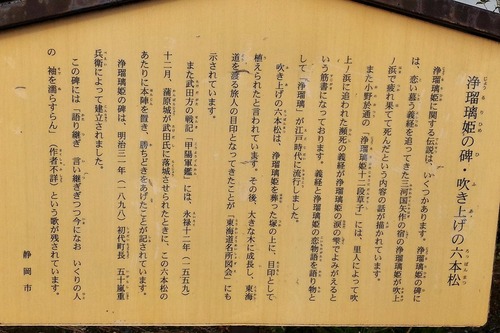 浄瑠璃姫の碑・吹き上げの六本松
浄瑠璃姫に関する伝説は、いくつかあります。浄瑠璃姫の碑に
は、恋い慕う義経を追ってきた三河国矢作の宿の浄瑠璃姫が吹上
ノ浜で疲れ果てて死んだという内容の話が描かれています。
また小野於通の「浄瑠璃姫十二段草子」には、里人によって吹
上ノ浜に追われた瀕死の義経が浄瑠璃姫の涙の雫でよみがえると
いう筋書になっております。義経と浄瑠璃姫の恋物語を語り物と
して「浄瑠璃」が江戸時代に流行しました。
吹き上げの六本松は、浄瑠璃姫を葬った塚の上に、目印として
植えられたと言われています。その後、大きな木に成長し、東海
道を渡る旅人の目印となってきたことが「東海道名所図会」にも
示されています。
また武田方の戦記「甲陽軍鑑」には、永禄十二年(一五五九)
十二月、蒲原城が武田氏に落城させられたときに、この六本松の
あたりに本陣を置き、勝ちどきをあげたことが記されています。
浄瑠璃姫の碑は、明治三一年(一八九八)初代町長 五十嵐重
兵衛によって建立されました。
この碑には「語り継ぎ 言い継ぎぎつつ今になお いくりの人
の 袖を濡らすらん」(作者不詳)という歌が残されています。
静岡市